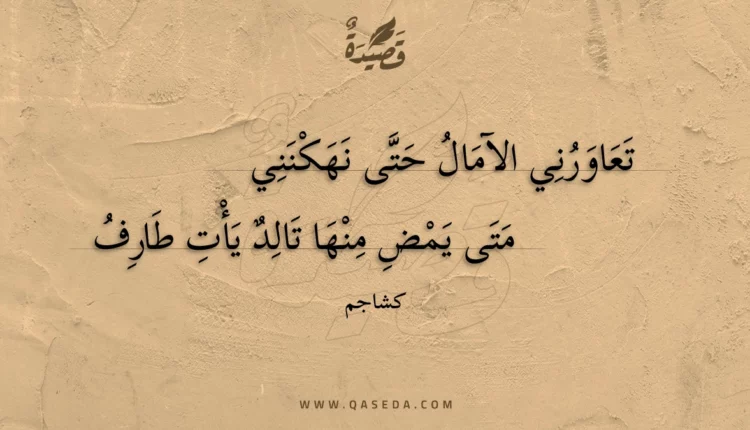 قَصِيدَةٌ
تَعَاوَرُنِي الآمَالُ حَتَّى نَهَكْنَنِي
مَتَى يَمْضِ مِنْهَا تَالِدٌ يَأْتِ طَارِفُ
كشاجم
WWW.QASEDA.COM